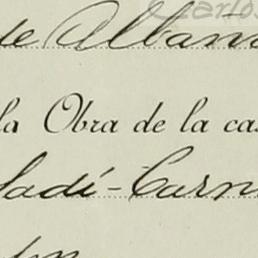 Carlos
de Albañ
la Obra de la cas
Sadí-Carn